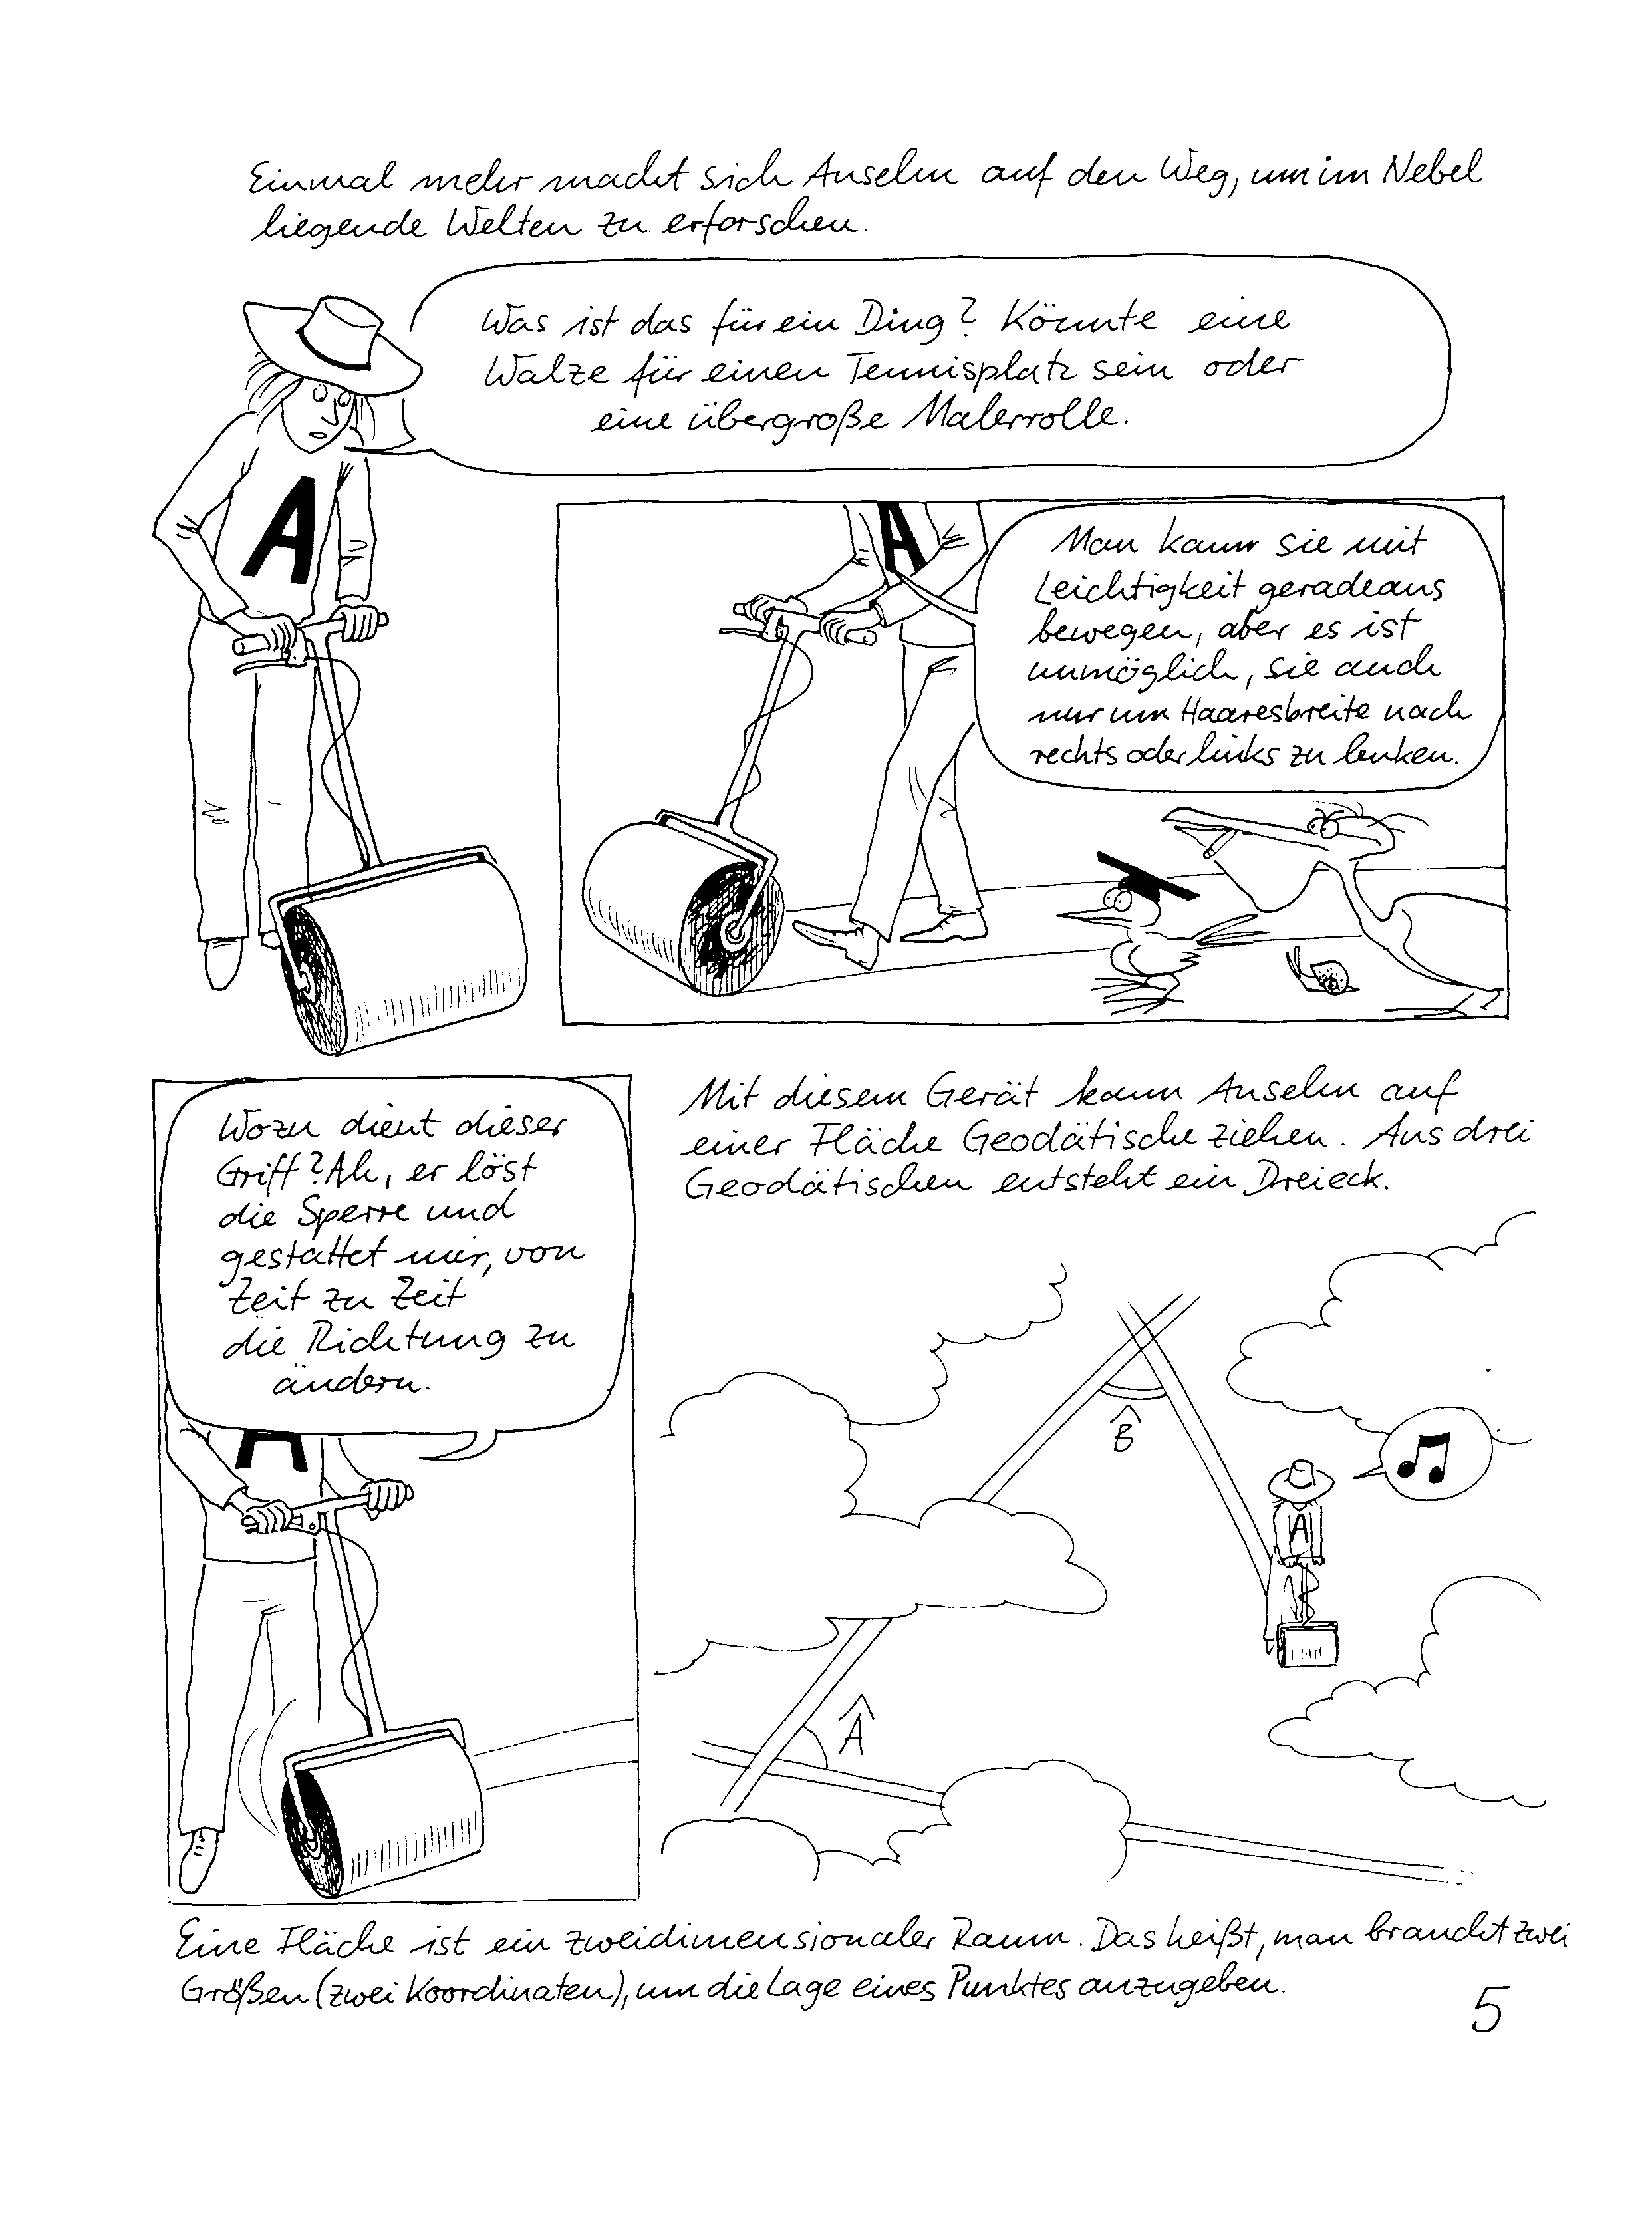 Einmal mehr macht sich Anselm auf den Weg, um im Nebel
liegende Welten zu erforschen.
Was ist das für ein Ding? Könnte eine
Walze für einen Tennisplatz sein oder
eine übergroße Malerrolle.
A
A
Man kann sie mit
Leichtigkeit geradeaus
bewegen, aber es ist
unmöglich, sie auch
nur um Haaresbreite nach
rechts oder links zu lenken.
Wozu dient dieser
Griff? Ah, er löst
die Sperre und
gestattet mir, von
Zeit zu Zeit
die Richtung zu
ändern.
Mit diesem Gerät kann Anselm auf
einer Fläche Geodätische ziehen. Aus drei
Geodätischen entsteht ein Dreieck.
B̂
A
Â
Eine Fläche ist ein zweidimensionaler Raum. Das heißt, man braucht zwei
Größen (zwei Koordinaten), um die Lage eines Punktes anzugeben.
5